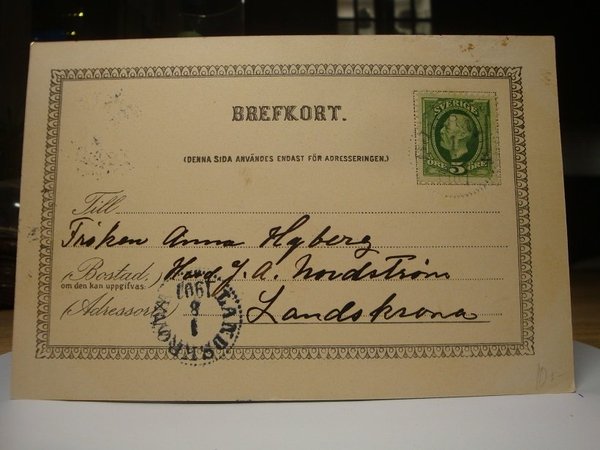 BREFKORT.
(DENNA SIDA ANVÄNDES ENDAST FÖR ADRESSERINGEN.)
SVERIGE
ÖRE 5 ÖRE
Till
Fröken Anna Hyberg
(Bostad,) Hand. J. A. Nordström
om den kan uppgifvas:
(Adressort) Landskrona
LANDSKRONA
1
8
1901
10:-